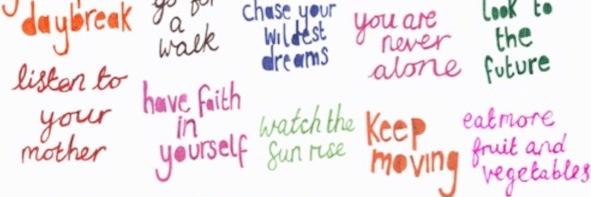 daybreak
go for
a
walk
chase your
wildest
dreams
you are
never
alone
look to
the
future
listen to
your
mother
have faith
in
yourself
watch the
sun rise
keep
moving
eat more
fruit and
vegetables